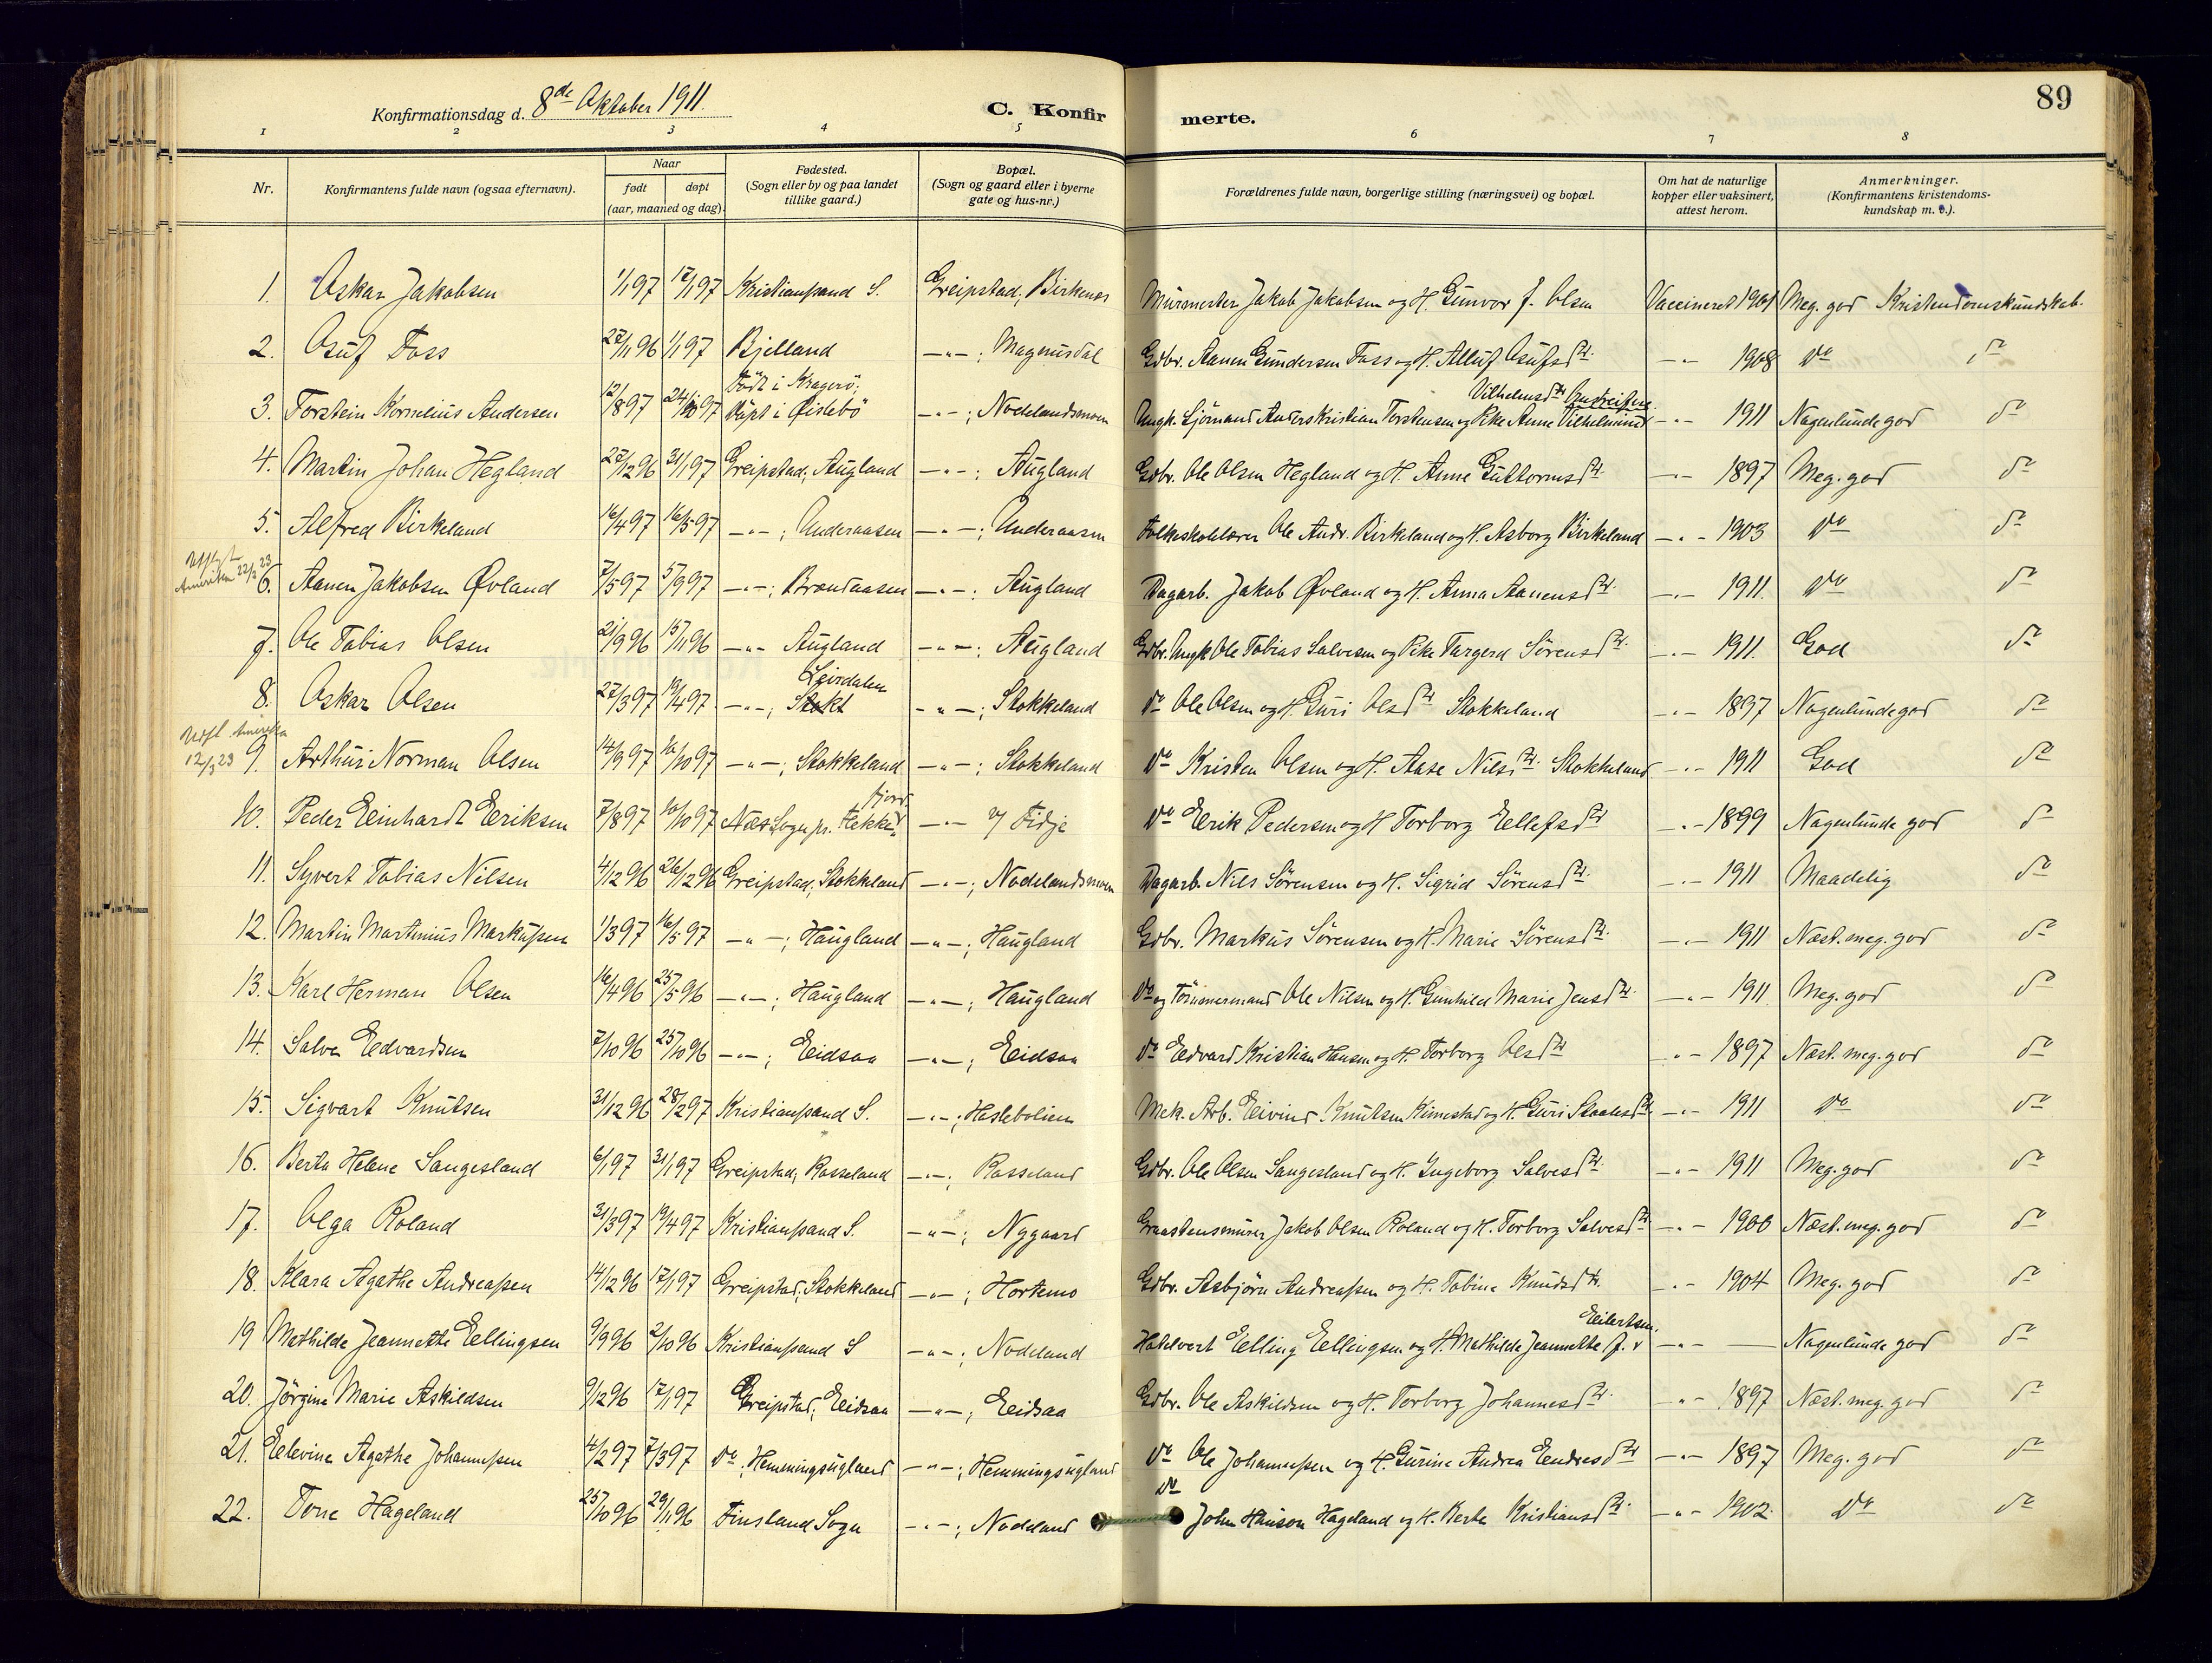 Konfirmationsdag d. 8de Oktober 1911. C. Konfirmerte. 89
1 2 3 4 5 6 7 8
Nr. Konfirmantens fulde navn (ogsaa efternavn). Naar født døpt (aar, maaned og dag). Fødested. (Sogn eller by og paa landet tillike gaard.) Bopæl. (Sogn og gaard eller i byerne gate og hus-nr.) Forældrenes fulde navn, borgerlige stilling (næringsvei) og bopæl. Om hat de naturlige kopper eller vaksinert, attest herom. Anmerkninger. (Konfirmantens kristendoms-kundskap m. v.).
1. Oskar Jakobsen 1/1 97 17/1 97 Kristianssand S. Greipstad; Birkenes Murmester Jakob Jakobsen og H. Gunvor f. Olsen Vaccineret 1901 Meg. god Kristendomskundskab.
2. Osuf Foss 27/11 96 1/1 97 Bjelland —"—; Magnusdal Gdbr. Aanen Gundersen Foss og H. Alluf Osufsdtr. —"— 1908 do do
3. Torstein Kornelius Andersen 12/8 97 24/10 97 Født i Kragerö; Döpt i Øislebö —"—; Nodelandsmoen Ungk. Sjömand Anders Kristian Torstensen og Pike Anne Vilhelmine Vilhelmsdtr —"— 1911 Nogenlunde god do
4. Martin Johan Hegland 27/12 96 31/1 97 Greipstad; Augland —"—; Augland Gdbr. Ole Olsen Hegland og H. Anne Guttormsdtr. —"— 1897 Meg. god do
5. Alfred Birkeland 16/4 97 16/5 97 —"—; Underaasen —"—; Underaasen Folkeskolelærer Ole Andr. Birkeland og H. Asborg Birkeland —"— 1903 do do
Utflyt Amerika 22/2 23
6. Aanen Jakobsen Øvland 7/5 97 5/9 97 —"—; Brændaasen —"—; Augland Dagarb. Jakob Øvland og H. Anna Aanensdtr. —"— 1911. do do
7. Ole Tobias Olsen 21/9 96 15/11 96 —"— Augland —"—; Augland Gdbr. Ungk Ole Tobias Salvesen og Pike Targerd Sörensdtr. —"— 1911. God do
8. Oskar Olsen 27/3 97 19/4 97 —"—; Stokk Leirdalen —"—; Stokkeland do Ole Olsen og H. Guri Olsdtr Stokkeland —"— 1897 Nogenlunde god do
Utfl. Amerika 12/3 23
9. Arthur Norman Olsen 14/9 97 10/10 97 —"—; Stokkeland —"—; Stokkeland do Kristen Olsen og H. Aase Nilsdtr. Stokkeland —"— 1911 God do
10. Peder Einhardt Eriksen 7/8 97 10/10 97 Næs Sogn pr. Fekkefjord —"— Fidje do Erik Pedersen og H Torborg Ellefsdtr —"— 1899 Nogenlunde god do
11. Syvert Tobias Nilsen 4/12 96 26/12 96 Greipstad; Stokkeland —"—; Nodelandsmoen Dagarb. Nils Sörensen og H. Sigrid Sörensdtr. —"— 1911 Maadelig do
12. Martin Martinius Markussen 1/3 97 16/5 97 —"—; Haugland —"—; Haugland Gdbr. Markus Sörensen og H. Marie Sörensdtr. —"— 1911 Næst. meg. god do
13. Karl Herman Olsen 16/4 96 25/5 96 —"—; Haugland —"—; Haugland do og Tömmermand Ole Nilsen og H. Gunhild Marie Jensdtr. —"— 1911 Meg. god do
14. Salve Edvardsen 7/10 96 25/10 96 —"—; Eidsaa —"—; Eidsaa do Edvard Kristian Hansen og H Torborg Olsdtr —"— 1897 Næst. meg. god do
15. Sigvart Knutsen 31/12 96 28/2 97 Kristianssand S. —"—; Haslebolien Mek. Arb. Eivind Knutsen Kimestad og H. Guri Staalesdtr —"— 1911 do do
16. Berta Helene Sangesland 6/1 97 31/1 97 Greipstad; Rosseland —"—; Rosseland Gdbr. Ole Olsen Sangesland og H. Ingeborg Salvesdtr. —"— 1911 Meg. god do
17. Olga Roland 31/3 97 19/4 97 Kristianssand S. —"—; Nygaard Graastensmurer Jakob Olsen Roland og H. Torborg Salvesdtr —"— 1900 Næst. meg. god do
18. Klara Agathe Andreassen 14/12 96 17/1 97 Greipstad; Stokkeland —"—; Hortemo Gdbr. Asbjörn Andreassen og H. Tobine Knudsdtr. —"— 1904 Meg. god do
19 Mathilde Jeannette Ellingsen 9/9 96 2/10 96 Kristianssand S —"—; Nodeland Hotelvert Elling Ellingsen og H. Mathilde Jeannette f. Eilertsen. —"— — Nogenlunde god do
20. Jörgine Marie Askildsen 9/12 96 17/1 97 Greipstad; Eidsaa —"—; Eidsaa Gdbr. Ole Askildsen og H. Torborg Johannesdtr. —"— 1897 Næst. meg. god do
21. Elevine Agathe Johannessen 4/2 97 7/3 97 do; Hemmingsugland —"—; Hemmingsugland do Ole Johannessen og H. Gurine Andrea Endresdtr —"— 1897 Meg. god do
22. Tone Hageland 25/10 96 29/11 96 Finsland Sogn —"—; Nodeland do John Hanson Hageland og H. Berte Kristiansdtr. —"— 1902. do do